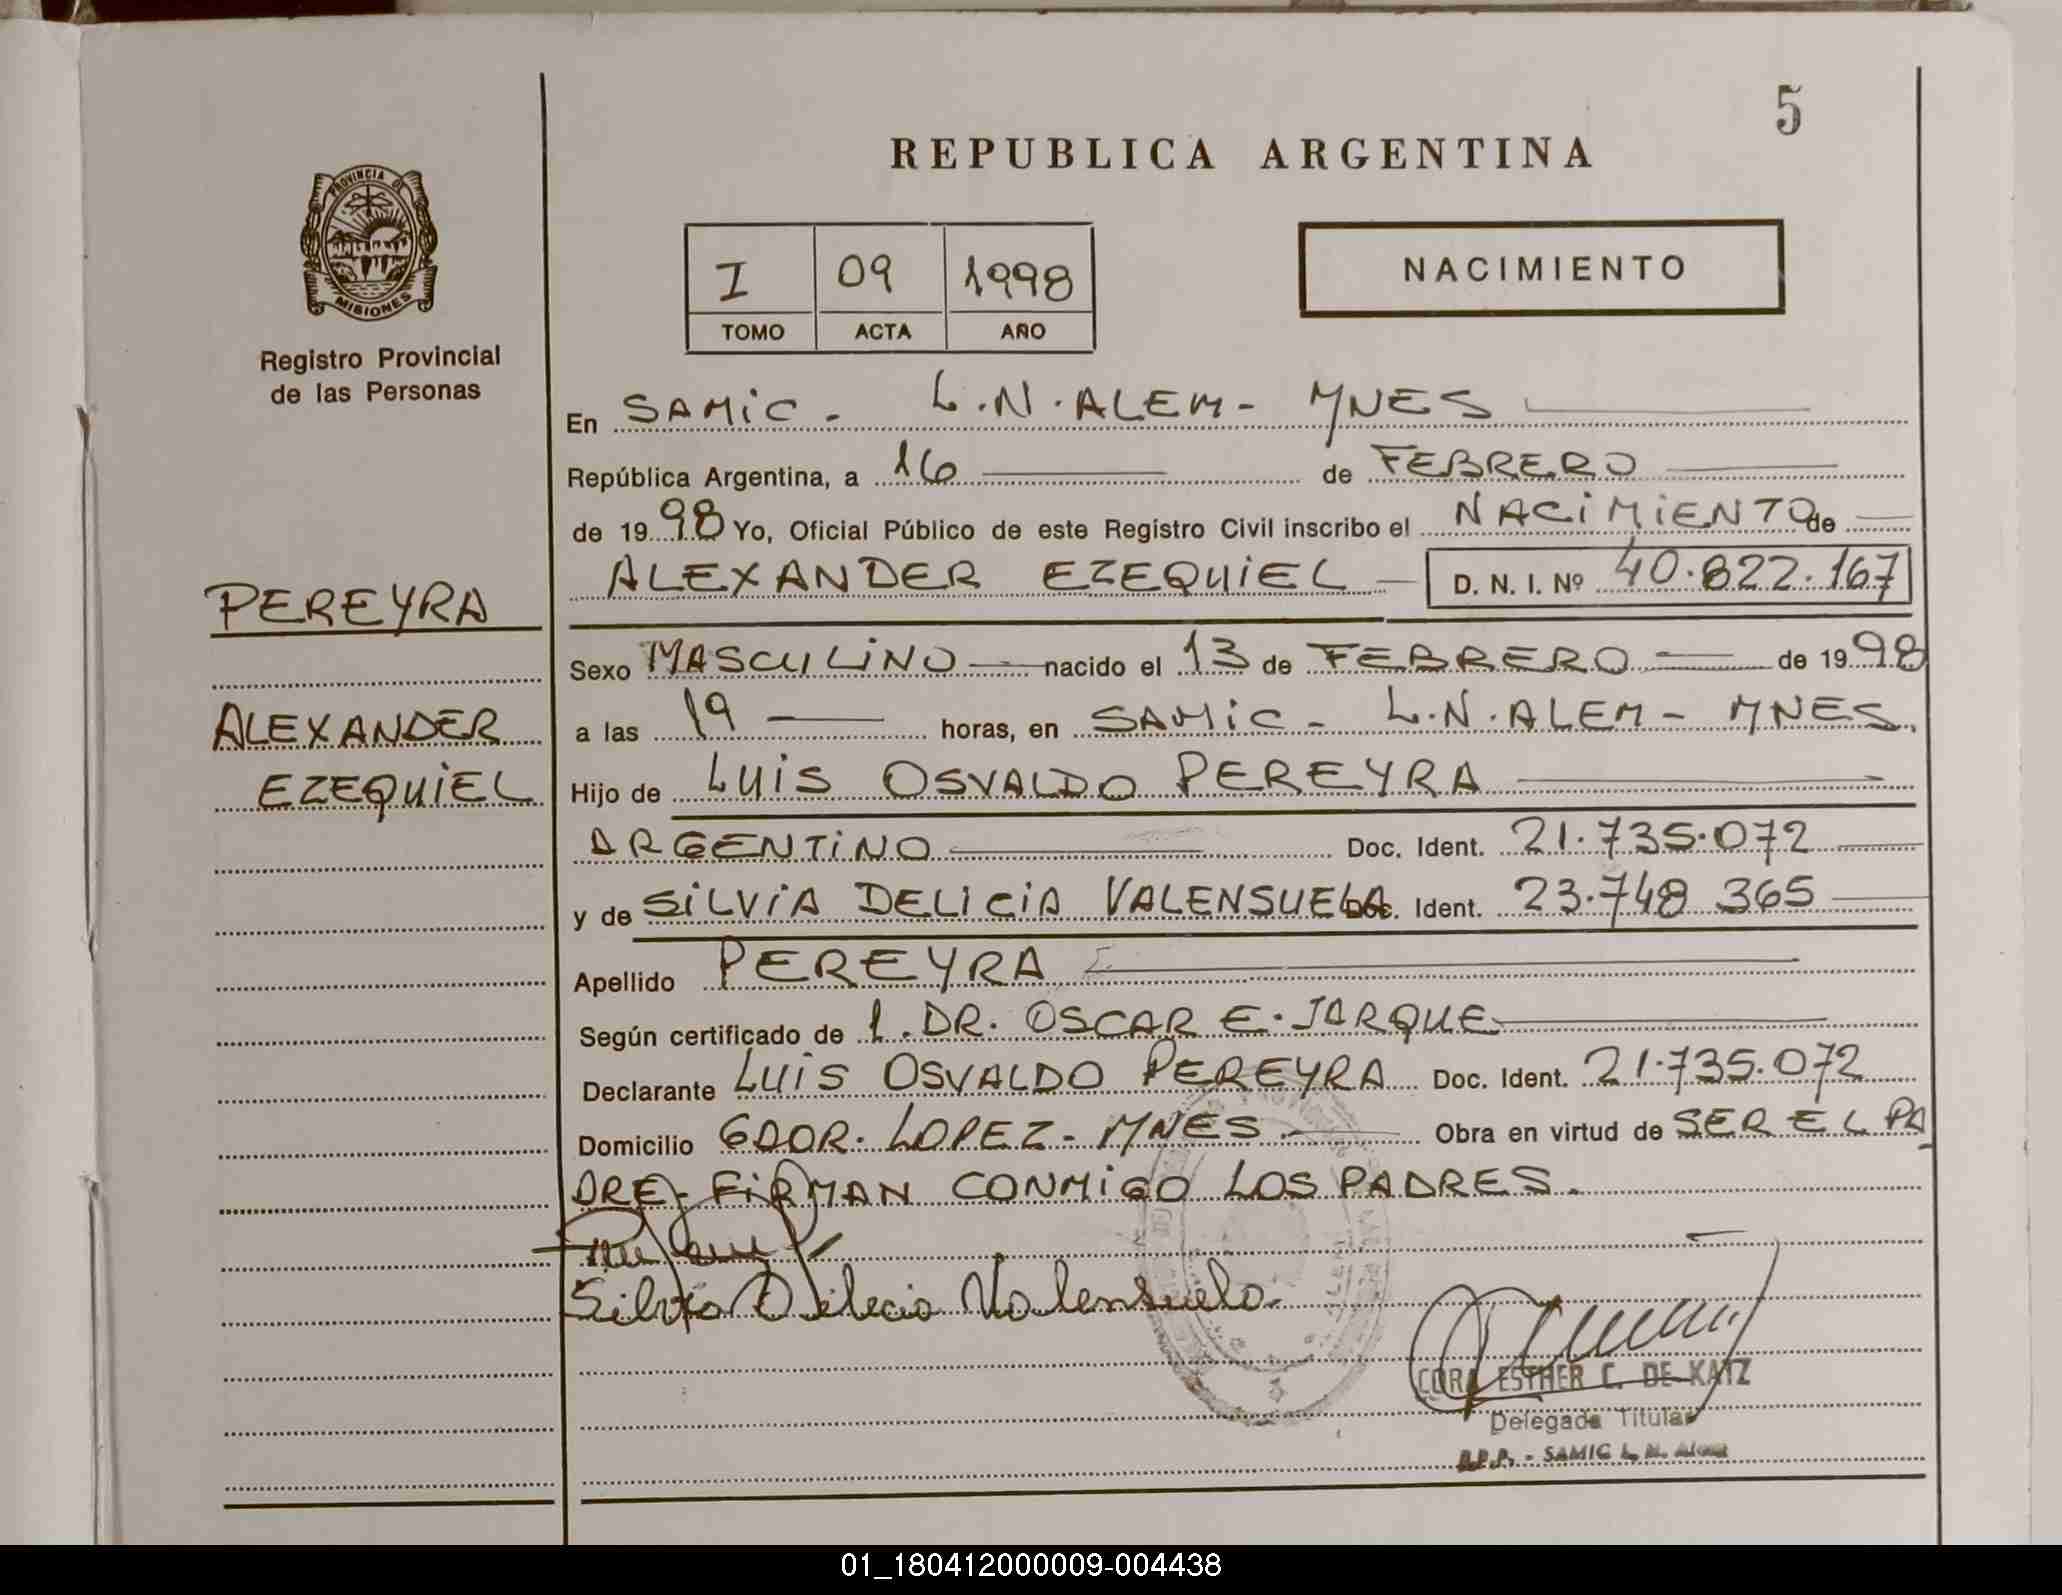 5
REPUBLICA ARGENTINA
PROVINCIA DE
MISIONES
Registro Provincial
de las Personas
I 09 1998
TOMO ACTA AÑO
NACIMIENTO
En SAMIC - L.N. ALEM - MNES
República Argentina, a 16 de FEBRERO
de 1998 Yo, Oficial Público de este Registro Civil inscribo el NACIMIENTO de
ALEXANDER EZEQUIEL - D. N. I. Nº 40.822.167
PEREYRA
ALEXANDER
EZEQUIEL
Sexo MASCULINO nacido el 13 de FEBRERO de 1998
a las 19 horas, en SAMIC - L.N. ALEM - MNES.
Hijo de LUIS OSVALDO PEREYRA
ARGENTINO Doc. Ident. 21.735.072
y de SILVIA DELICIA VALENSUELA Doc. Ident. 23.748 365
Apellido PEREYRA
Según certificado de 1. DR. OSCAR E. JARQUE
Declarante LUIS OSVALDO PEREYRA Doc. Ident. 21.735.072
Domicilio GDOR. LOPEZ - MNES. Obra en virtud de SER EL PA
DRE - FIRMAN CONMIGO LOS PADRES.
Silvia Delecia Valensuela.
CORA ESTHER C. DE KATZ
Delegada Titular
R.P.P. - SAMIC L. N. Alem
01_180412000009-004438